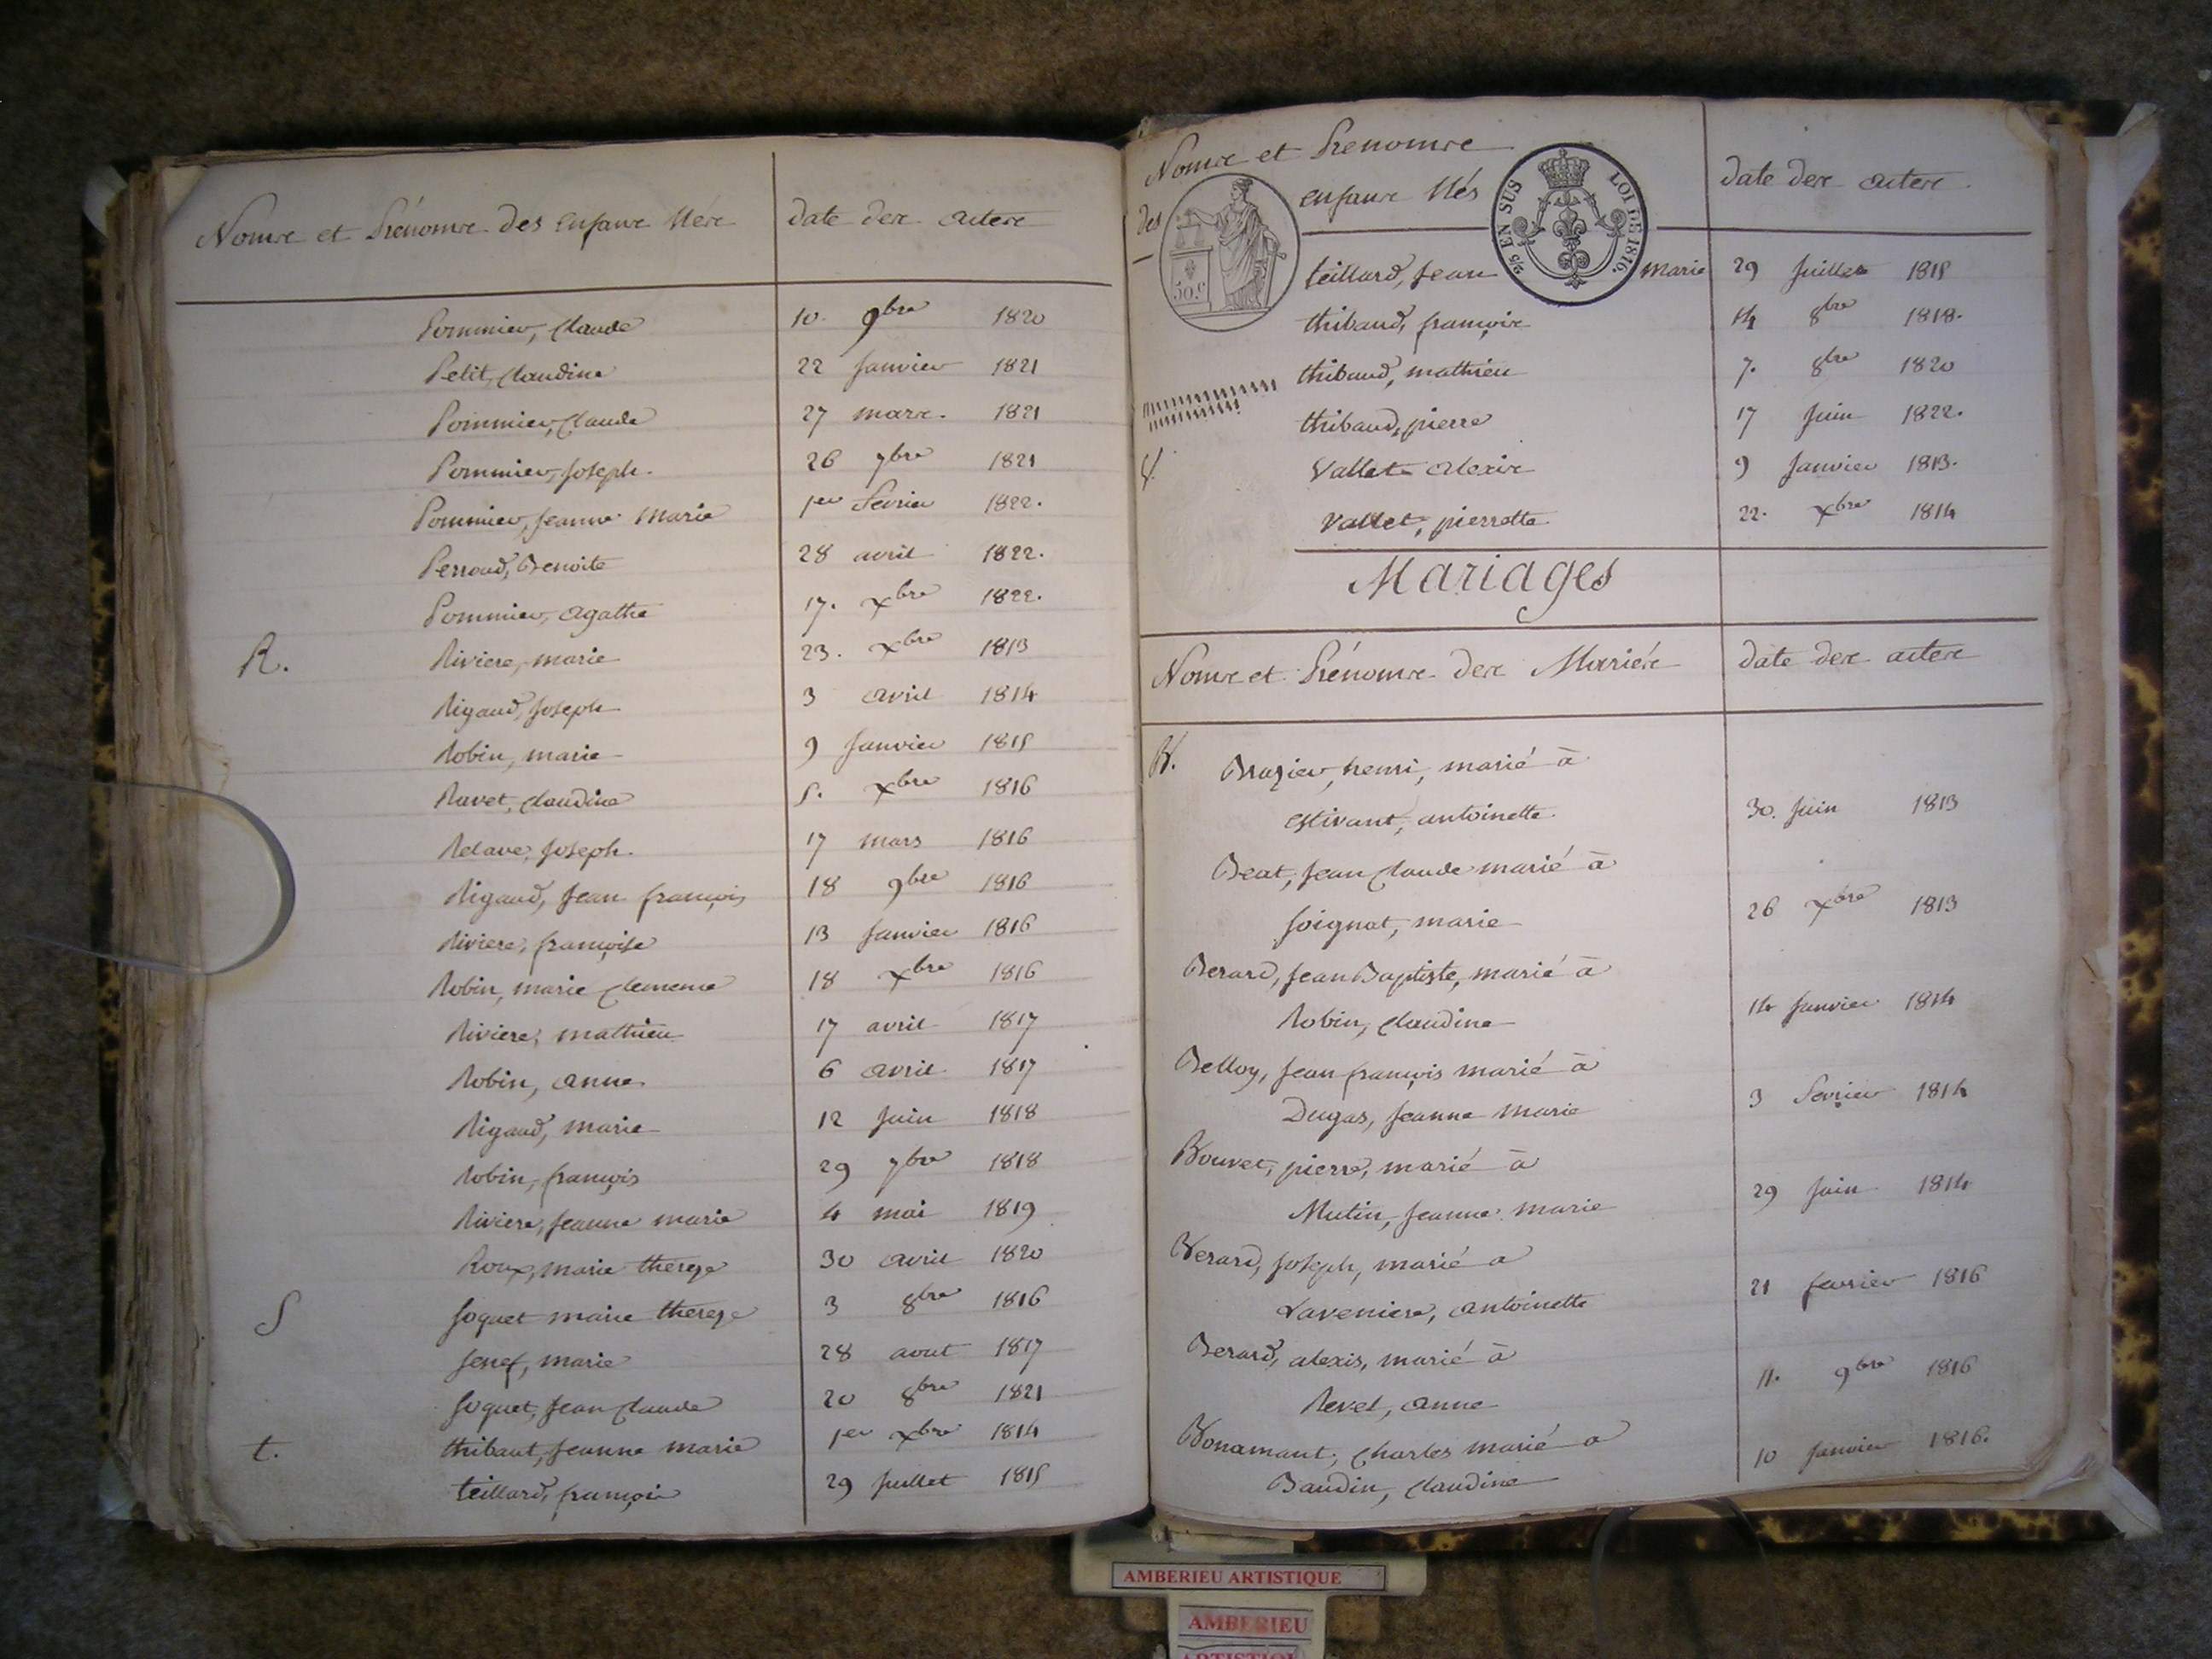 Noms et Prénoms des enfans Nés date des actes
Pommier, Claude 10. 9bre 1820
Petit, Claudine 22 Janvier 1821
Pommier, Claude 27 mars. 1821
Pommier, Joseph. 26 7bre 1821
Pommier, Jeanne Marie 1er Fevrier 1822.
Perroud, Benoite 28 avril 1822.
Pommier, agathe 17. xbre 1822.
R. Riviere, marie 23. xbre 1813
Rigaud, Joseph 3 avril 1814
Robin, marie 9 Janvier 1815
Ravet, Claudine 5. xbre 1816
Relave, Joseph. 17 mars 1816
Rigaud, Jean françois 18 9bre 1816
Riviere, françoise 13 Janvier 1816
Robin, marie Clemence 18 xbre 1816
Riviere, mathieu 17 avril 1817
Robin, anne 6 avril 1817
Rigaud, marie 12 Juin 1818
Robin, françois 29 7bre 1818
Riviere, Jeanne marie 4 mai 1819
Roux, marie thereze 30 avril 1820
S Soquet marie thereze 3 8bre 1816
marie 28 aout 1817
Soquet, Jean Claude 20 8bre 1821
t. thibaut, Jeanne marie 1er xbre 1814
teillard, françois 29 Juillet 1815
Noms et Prenoms
des enfans Nés date des actes
50.c
EN SUS LOI DE 1816.
teillard, Jean marie 29 Juillet 1815
thibaud, françois 14 8bre 1818.
thibaud, mathieu 7. 8bre 1820
thibaud, pierre 17 Juin 1822.
V. Vallet alexis 9 Janvier 1813.
Vallet, pierrette 22. xbre 1814
Mariages
Noms et Prénoms des Mariés date des actes
B. Brazier, henri, marié à
estivant, antoinette. 30. Juin 1813
Beat, Jean Claude marié à
Soignat, marie 26 xbre 1813
Berard, Jean Baptiste, marié à
Robin, Claudine 14 Janvier 1814
Belloy, Jean françois marié à
Dugas, Jeanne marie 3 Fevrier 1814
Bouvet, pierre, marié à
Mutin, Jeanne marie 29 Juin 1814
Berard, Joseph, marié a
Laveniere, antoinette 21 fevrier 1816
Berard, alexis, marié à
Revel, anne 11. 9bre 1816
Bonamant, Charles marié a
Baudin, Claudine 10 Janvier 1816.
AMBERIEU ARTISTIQUE
AMBERIEU
ARTISTIQUE